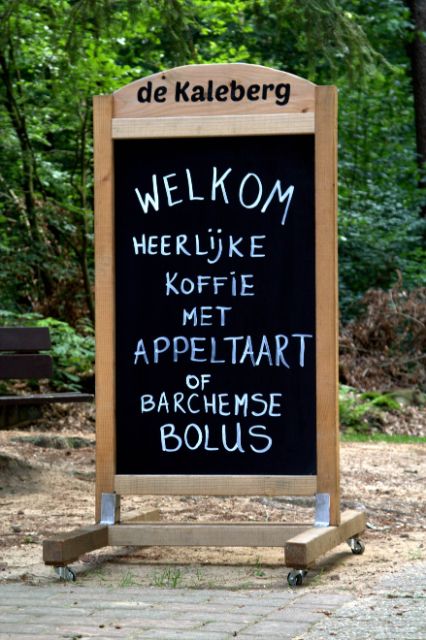 de Kaleberg
WELKOM
HEERLIJKE
KOFFIE
MET
APPELTAART
OF
BARCHEMSE
BOLUS